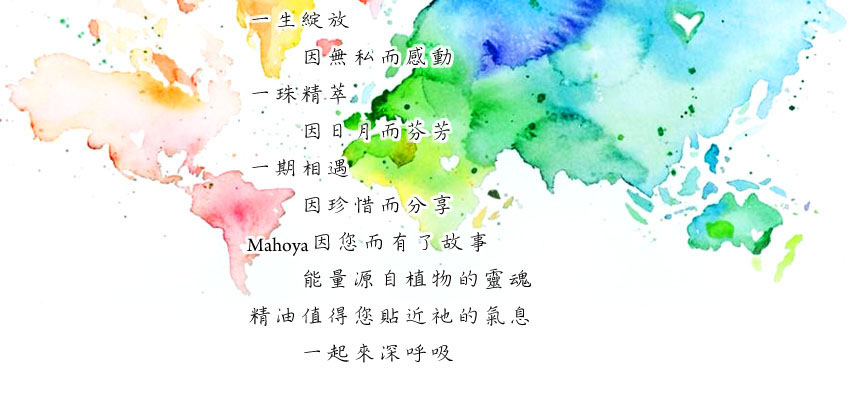 一生綻放
因無私而感動
一珠精萃
因日月而芬芳
一期相遇
因珍惜而分享
Mahoya因您而有了故事
能量源自植物的靈魂
精油值得您貼近祂的氣息
一起來深呼吸